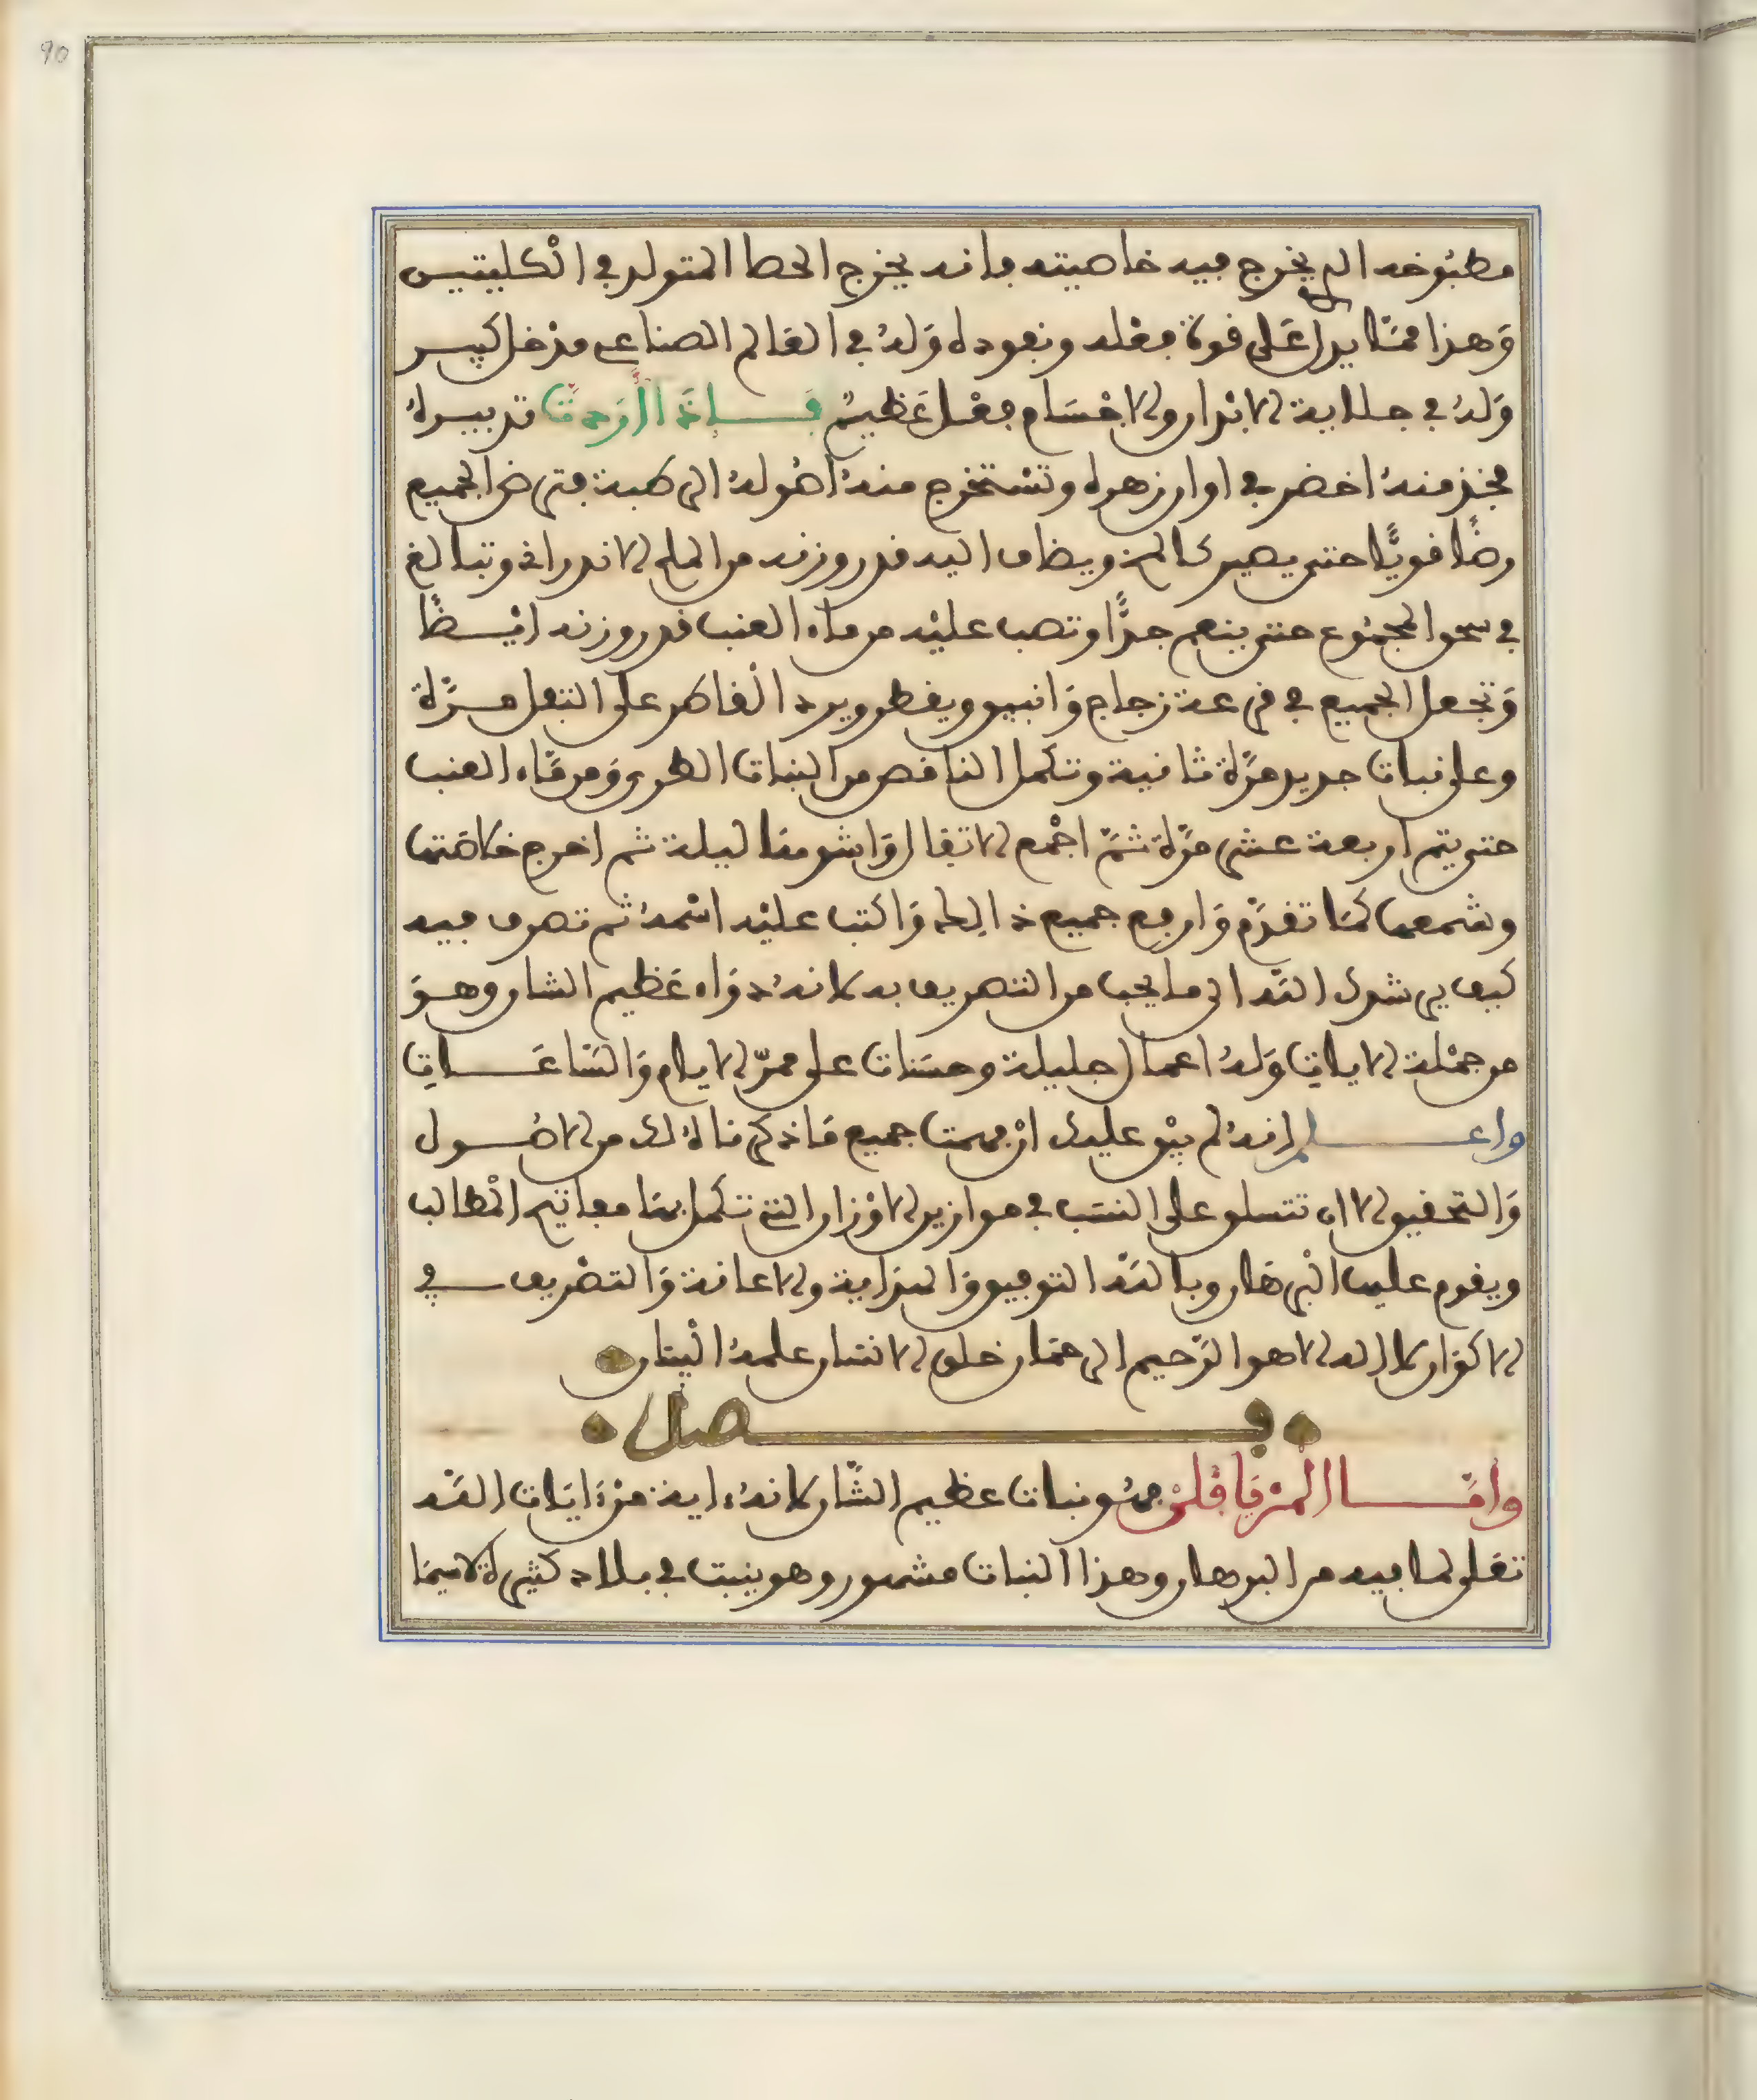 90
مطبوخه الي يخرج فيه خاصيته فانه يخرج الحصا المتولد في الكليتين
وهذا ممّا يدل على قوة فعله ونفوده وله في العالم الصناعي مدخل كبير
وله في جلاية الابدان والاجسام فعل عظيم فإذا أردت تدبيره
فخذ منه اخضر في اوان زهره وتستخرج منه اصوله الرطبة فترض الجميع
رضّا قويّا حتى يصير كالمخ ويضاف اليه قدر وزنه من الملح الاندراني وتبالغ
في سحق المجموع حتى ينعم جدّا وتصب عليه من ماء العنب قدر وزنه ايضا
وتجعل الجميع في قرعة زجاج وانبيق ويقطر ويرد القاطر على التفل مرّة
وعلى نبات جديد مرّة ثانية وتكمل الناقص من النبات الطري ومن ماء العنب
حتى يتم اربعة عشر مرّة ثمّ اجمع الاتفال واشومها ليلة ثم اخرج خلاصتها
وشمعها كما تقدّم وارفع جميع ذالك واكتب عليه اسمه ثم تصرف فيه
كيف يرشدك الله الى ما يجب من التصريف به لانه دواء عظيم الشان وهو
من جملة الايات وله اعمال جليلة وحسنات على ممرّ الايام والساعات
واعلم انه لم يبق عليك ان فهمت جميع ما ذكرناه لك من الاصول
والتحقيق الا ان تتسلق على النسب في موازين الاوزان التي تكمل بها مفاتيح المطالب
ويقوم عليها البرهان وبالله التوفيق والهداية والاعانة والتصريف في
الاكوان لا اله الا هو الرّحيم الرحمان خلق الانسان علمه البيان
فصل
وامّا المرياقلن فهو نبات عظيم الشّان لانه ءاية من ءايات الله
تعلى لما فيه من البرهان وهذا النبات مشهور وهو ينبت في بلاد كثيرة لاسيما